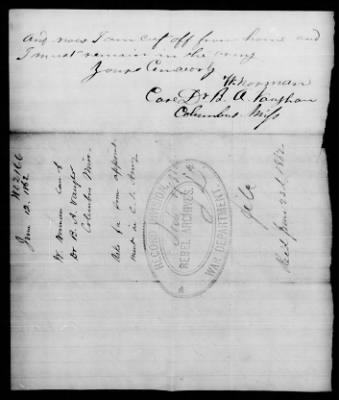 And now I am cut off from home and
I must remain in the army
Yours
W. Norman
Care Dr B. A. Vaughan
Columbus Miss
June 12. 1862
W. Norman care of
Dr B. A. Vaughn
Columbus Miss.
Asks for
in C. S. Army
RECORD DIVISION
REBEL ARCHIVES
WAR DEPARTMENT
Recd June 23d 1862